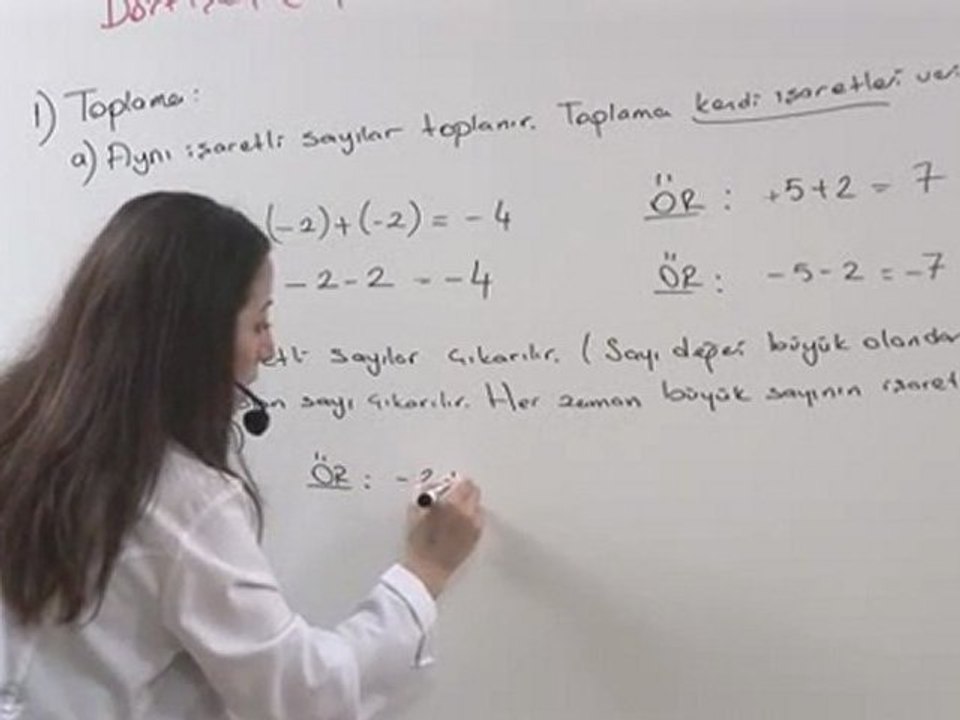 1) Toplama:
a) Aynı işaretli sayılar toplanır. Toplama kendi işaretleri
(-2)+(-2) = -4
ÖR : +5+2 = 7
-2-2 = -4
ÖR : -5-2 = -7
sayılar çıkarılır. (Sayı değeri büyük olandan
sayı çıkarılır. Her zaman büyük sayının
ÖR : -2